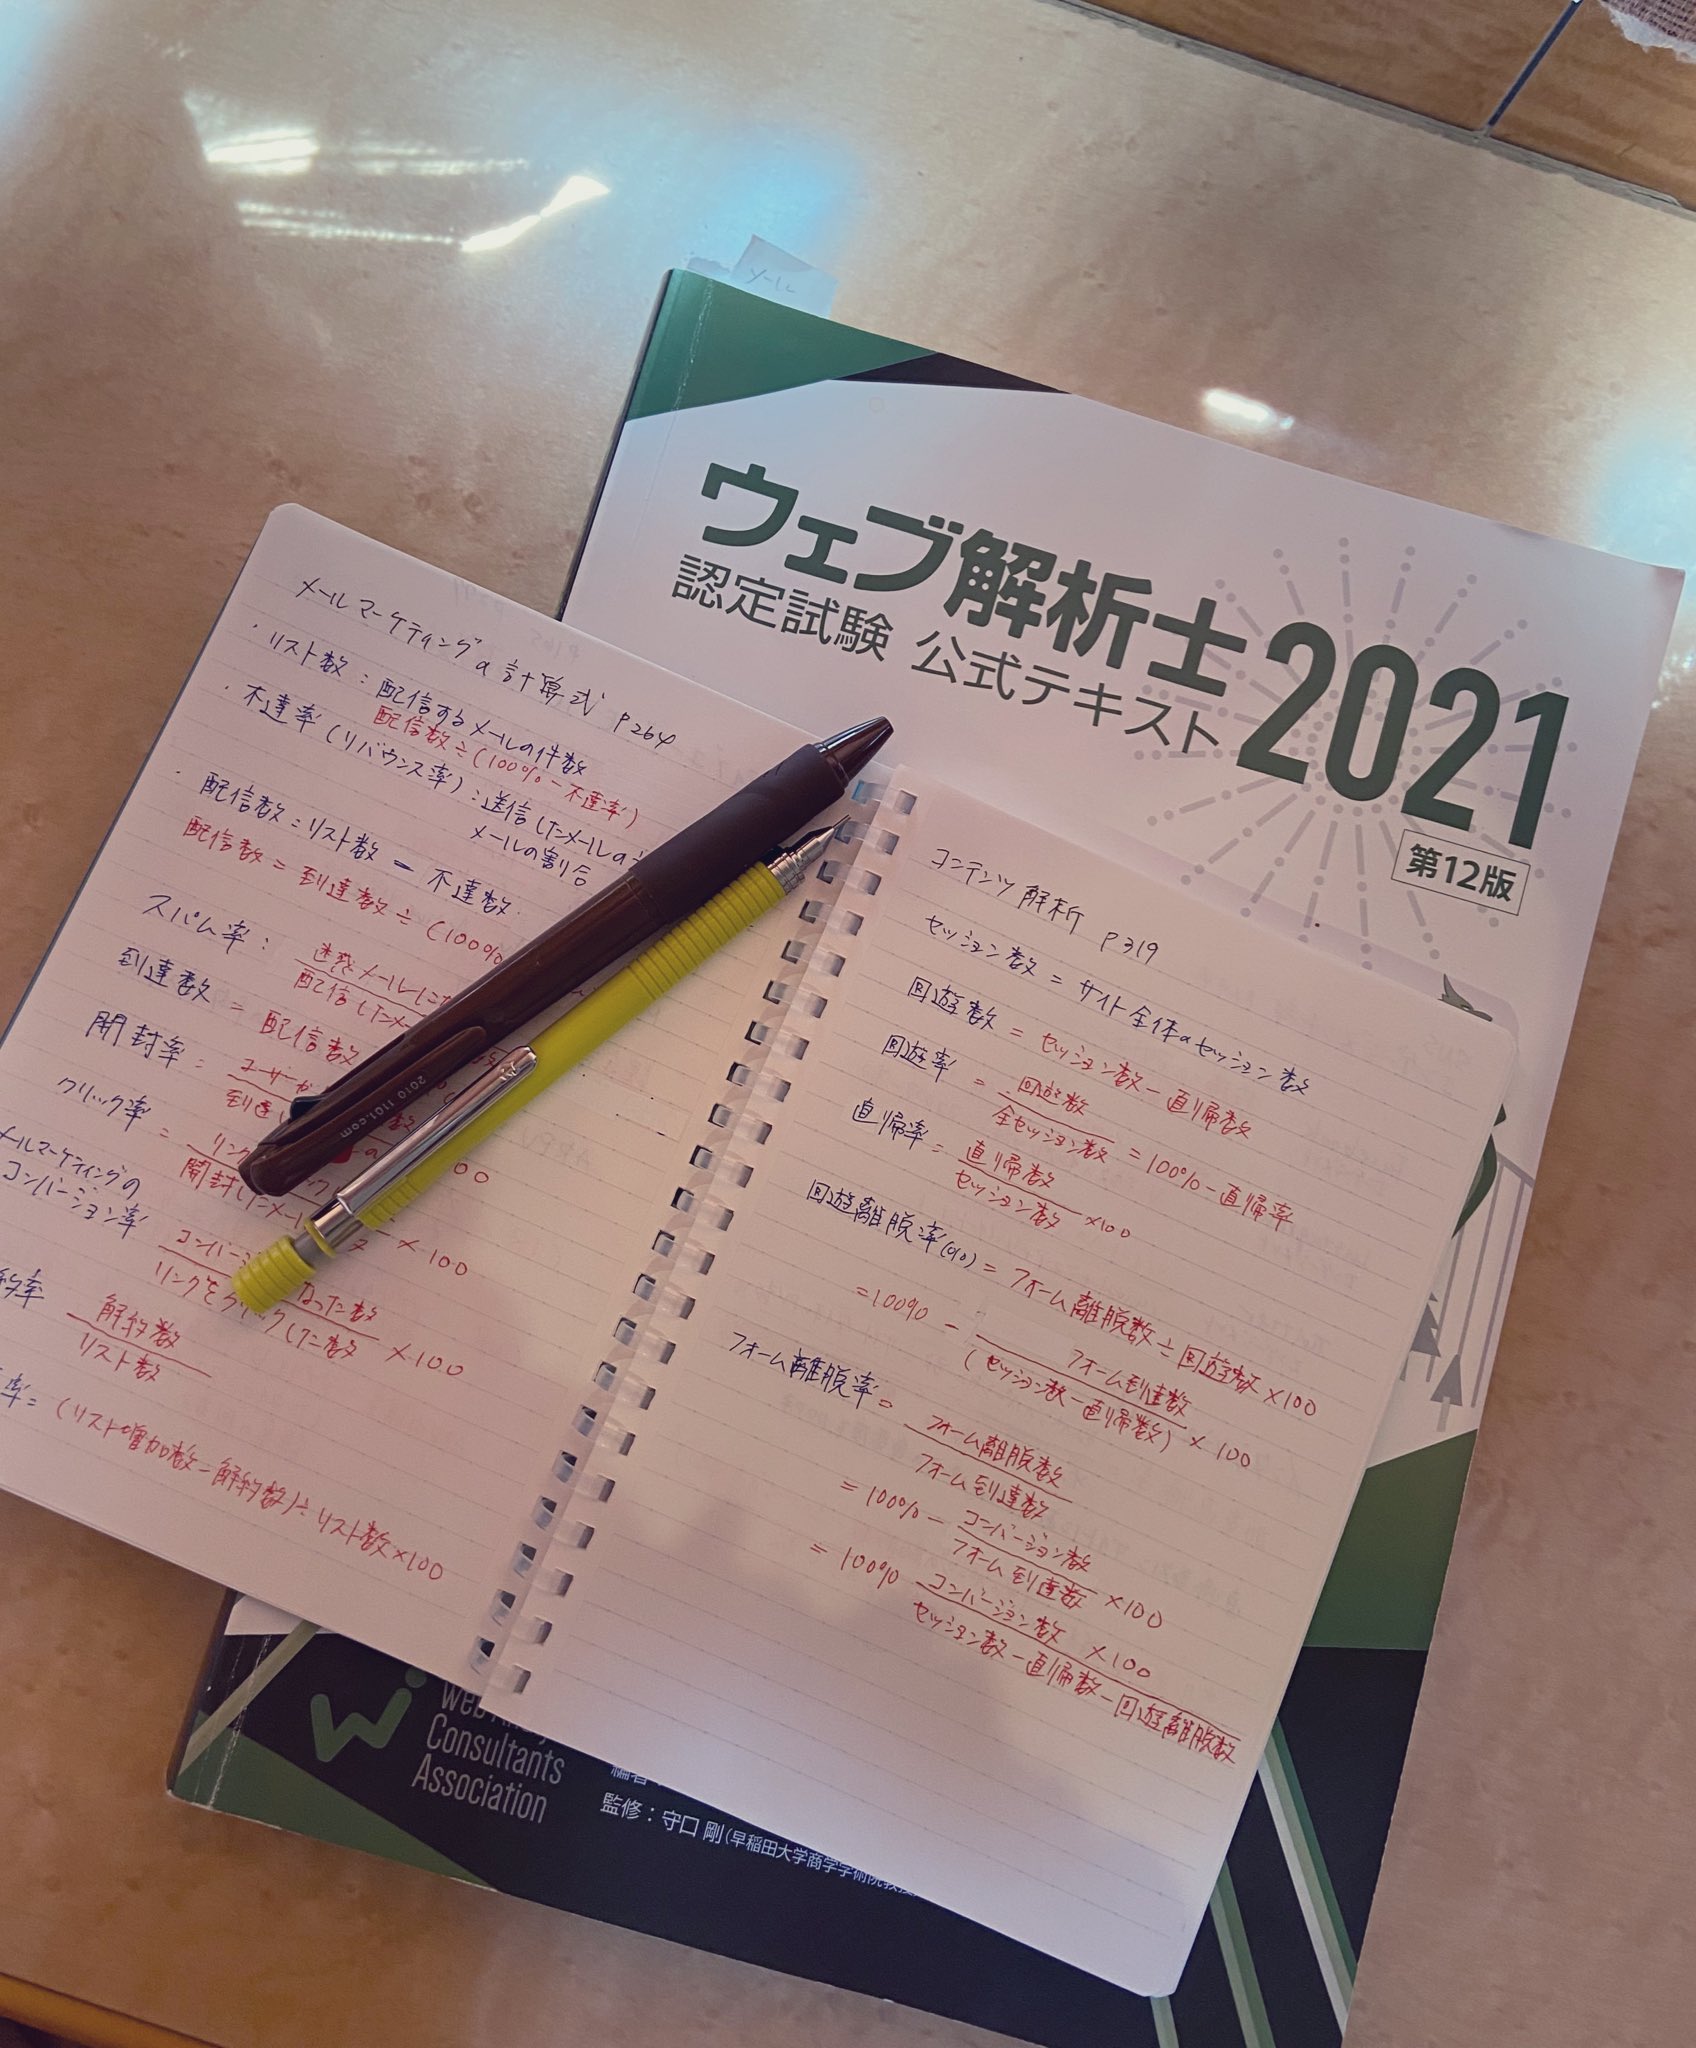 メール
ウェブ解析士2021
認定試験 公式テキスト
第12版
メールマーケティングの計算式 P264
・リスト数：配信するメールの件数
配信数÷(100%-不達率)
・不達率(リバウンス率)：送信したメールの
メールの割合
・配信数=リスト数-不達数
配信数=到達数÷(100%
スパム率：
迷惑メールに
配信したメー
到達数=配信数
開封率：
ユーザーが
クリック率=
リンク
開封したメール
×100
メールマーケティングの
コンバージョン率
なった数
リンクをクリックした数
×100
約率
解約数
リスト数
率=(リスト増加数-解約数)÷リスト数×100
2010 1101.com
コンテンツ解析 P319
セッション数=サイト全体のセッション数
回遊数=セッション数-直帰数
回遊率=
回遊数
全セッション数
=100%-直帰率
直帰率=
直帰数
セッション数
×100
回遊離脱率(%)=フォーム離脱数÷回遊数×100
=100%-
フォーム到達数
(セッション数-直帰数)
×100
フォーム離脱率=
フォーム離脱数
フォーム到達数
=100%-
コンバージョン数
フォーム到達数
×100
=100%
コンバージョン数
×100
セッション数-直帰数-回遊離脱数
Web
Consultants
Association
監修：守口 剛(早稲田大学商学学術院教授